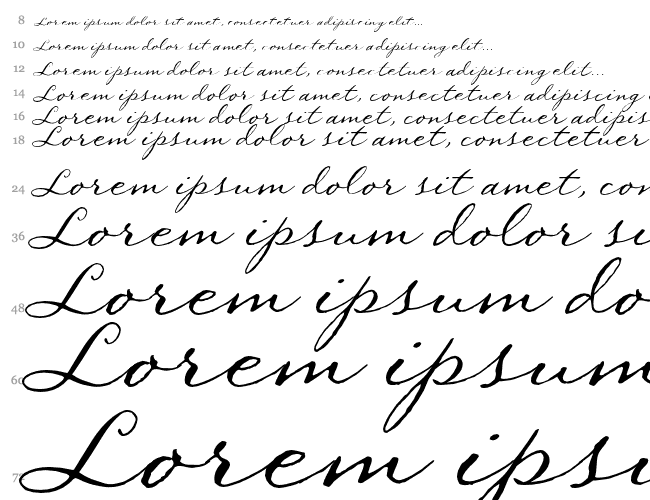 8 Lorem ipsum dolor sit amet, consectetuer adipiscing elit...
10 Lorem ipsum dolor sit amet, consectetuer adipiscing elit...
12 Lorem ipsum dolor sit amet, consectetuer adipiscing elit...
14 Lorem ipsum dolor sit amet, consectetuer adipiscing
16 Lorem ipsum dolor sit amet, consectetuer adipis
18 Lorem ipsum dolor sit amet, consectetuer
24 Lorem ipsum dolor sit amet, con
36 Lorem ipsum dolor si
48 Lorem ipsum do
60 Lorem ipsum
72 Lorem ipsu